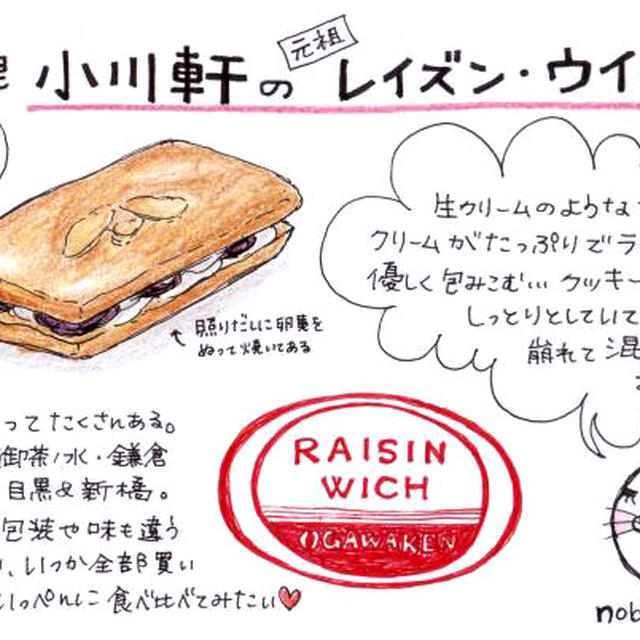 元祖
小川軒のレイズン・ウイ
生クリームのような
クリームがたっぷりでラ
優しく包みこむ… クッキー
しっとりとしていて
崩れて混
照りだしに卵黄を
ぬって焼いてある
ってたくさんある。
御茶ノ水・鎌倉
目黒&新橋。
包装や味も違う
、いつか全部買い
いっぺんに食べ比べてみたい♥
RAISIN
WICH
OGAWAKEN
nob